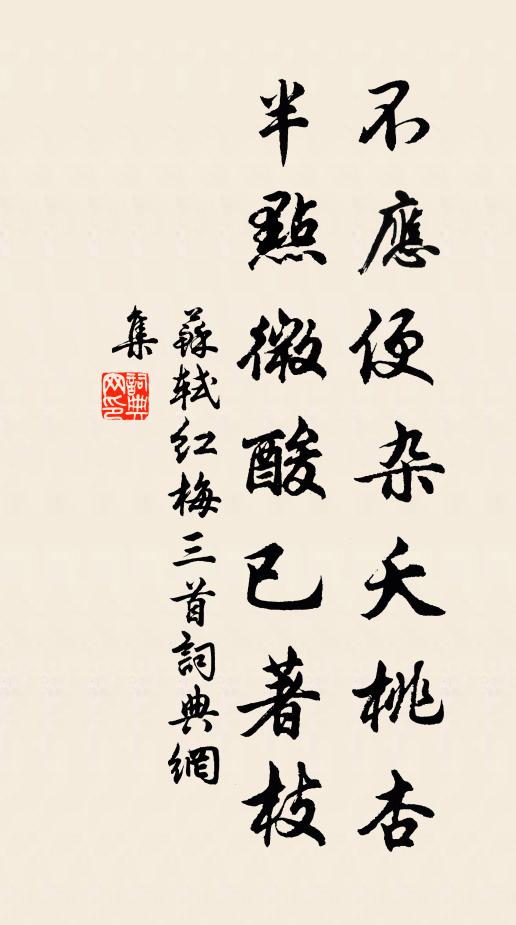 不應便杂夭桃杏
半點微酸已著枝
蘇軾紅梅三首詞典網
集
詞典
网印